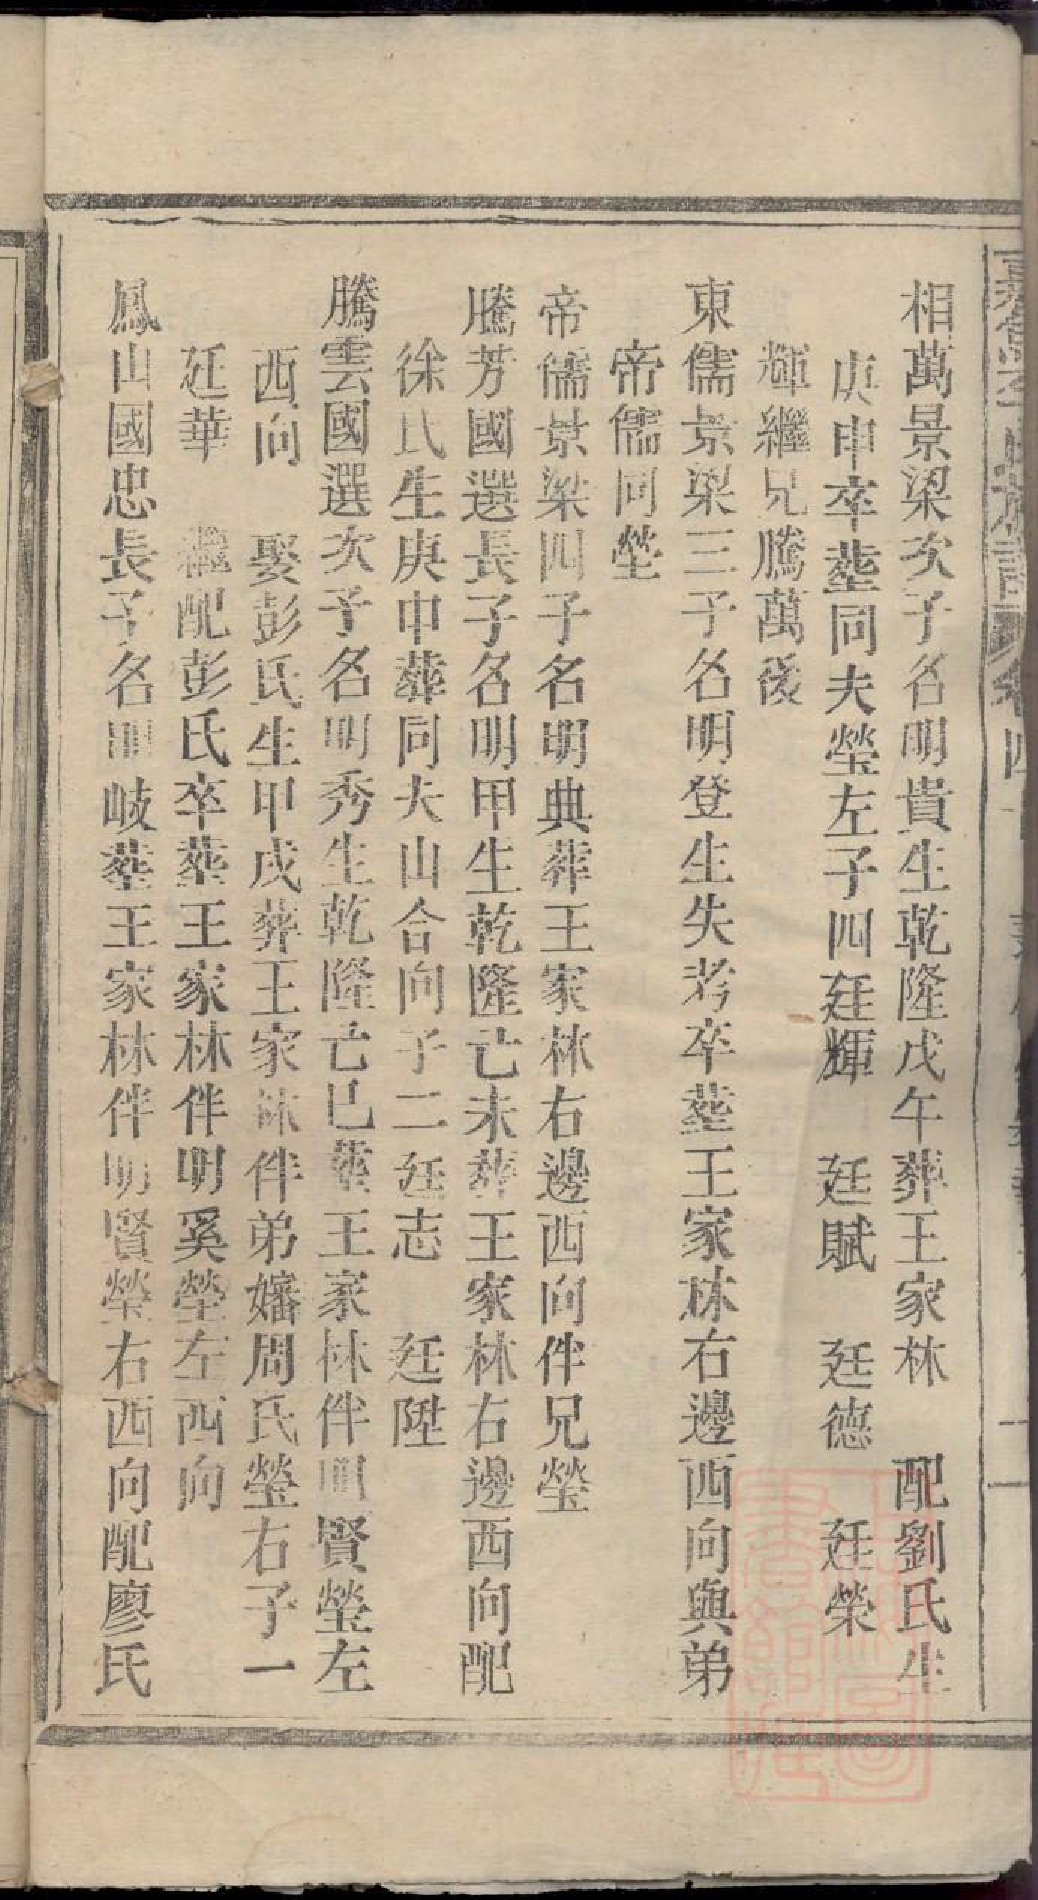 相萬景梁次子名明貴生乾隆戊午葬王家林　配劉氏生
庚申卒塟同夫瑩左子四廷輝　廷賦　廷德　廷榮
輝繼兄騰萬後
東儒景梁三子名明登生失考卒塟王家林右邊西向與弟
帝儒同塋
帝儒景梁四子名明典葬王家林右邊西向伴兄瑩
騰芳國選長子名明甲生乾隆亡未葬王家林右邊西向配
徐氏生庚申葬同夫山合向子二廷志　廷陞
騰雲國選次子名明秀生乾隆亡巳塟王家林伴明賢瑩左
西向　娶彭氏生甲戌葬王家林伴弟嬸周氏瑩右子一
廷華　繼配彭氏卒塟王家林伴明奚瑩左西向
鳳山國忠長子名明岐塟王家林伴明賢瑩右西向配廖氏